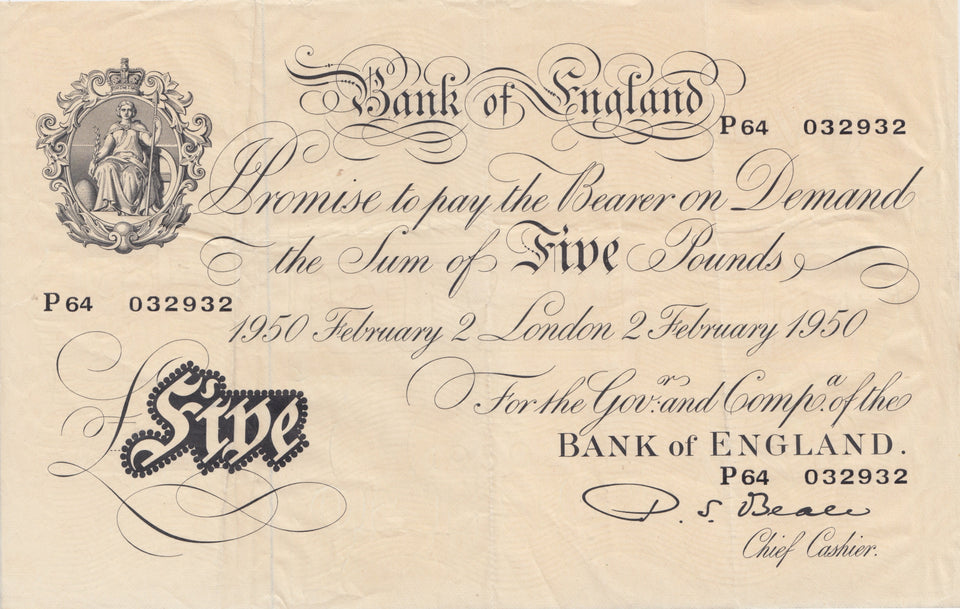 Bank of England
P64 032932
I Promise to pay the Bearer on Demand
the Sum of Five Pounds
P64 032932
1950 February 2 London 2 February 1950
£Five
For the Gov.r and Comp.a of the
BANK of ENGLAND.
P64 032932
P. S. Beale
Chief Cashier.